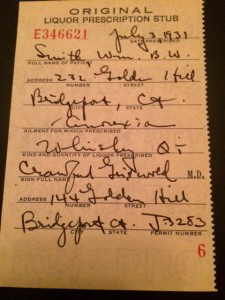 ORIGINAL
LIQUOR PRESCRIPTION STUB
E346621 July 3, 1931
DATE PRESCRIBED
Smith Wm. B. W.
FULL NAME OF PATIENT
ADDRESS 232 Golden Hill
NUMBER STREET
Bridgeport, Ct.
CITY STATE
Anorexia
AILMENT FOR WHICH PRESCRIBED
Whisky Qt
KIND AND QUANTITY OF LIQUOR PRESCRIBED
Crawford Griswold M.D.
SIGN FULL NAME
ADDRESS 144 Golden Hill
NUMBER STREET
Bridgeport Ct. J-3283
CITY STATE PERMIT NUMBER
6